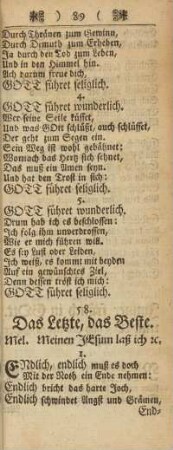 ) 89 (
Durch Thränen zum Gewinn,
Durch Demuth zum Erheben,
Ja durch den Tod zum Leben,
Und in den Himmel hin.
Ach darum freue dich,
GOTT führet seliglich.
4.
GOTT führet wunderlich.
Wer seine Seile küsset,
Und was GOtt schlüßt, auch schlüsset,
Der geht zum Segen ein.
Sein Weg ist wohl gebähnet:
Wornach das Hertz sich sehnet,
Das muß ein Amen seyn.
Und hat den Trost in sich:
GOTT führet seliglich.
5.
GOTT führet wunderlich.
Drum hab ich es beschlossen:
Ich folg ihm unverdrossen,
Wie er mich führen will.
Es sey Lust oder Leiden,
Ich weiß, es kommt mit beyden
Auf ein gewünschtes Ziel,
Denn dessen tröst ich mich:
GOTT führet seliglich.
58.
Das Letzte, das Beste.
Mel. Meinen JEsum laß ich ꝛc.
1.
ENdlich, endlich muß es doch
Mit der Noth ein Ende nehmen:
Endlich bricht das harte Joch,
Endlich schwindet Angst und Grämen,
End-